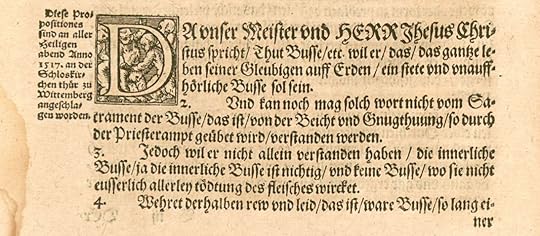 Diese Pro-
positiones
sind an aller
Heiligen
abend Anno
1517. an der
Schloskir-
chen thür zu
Wittemberg
angeschla-
gen worden.
DA unser Meister und HERR Jhesus Chri-
stus spricht / Thut Busse / etc. wil er / das / das gantze le-
ben seiner Gleubigen auff Erden / ein stete und unauff-
hörliche Busse sol sein.
2. Und kan noch mag solch wort nicht vom Sa-
crament der Busse / das ist / von der Beicht und Gnugthuung / so durch
der Priesterampt geübet wird / verstanden werden.
3. Jedoch wil er nicht allein verstanden haben / die innerliche
Busse / ja die innerliche Busse ist nichtig / und keine Busse / wo sie nicht
eusserlich allerley tödtung des fleisches wircket.
4 Wehret derhalben rew und leid / das ist / ware Busse / so lang ei-
ner